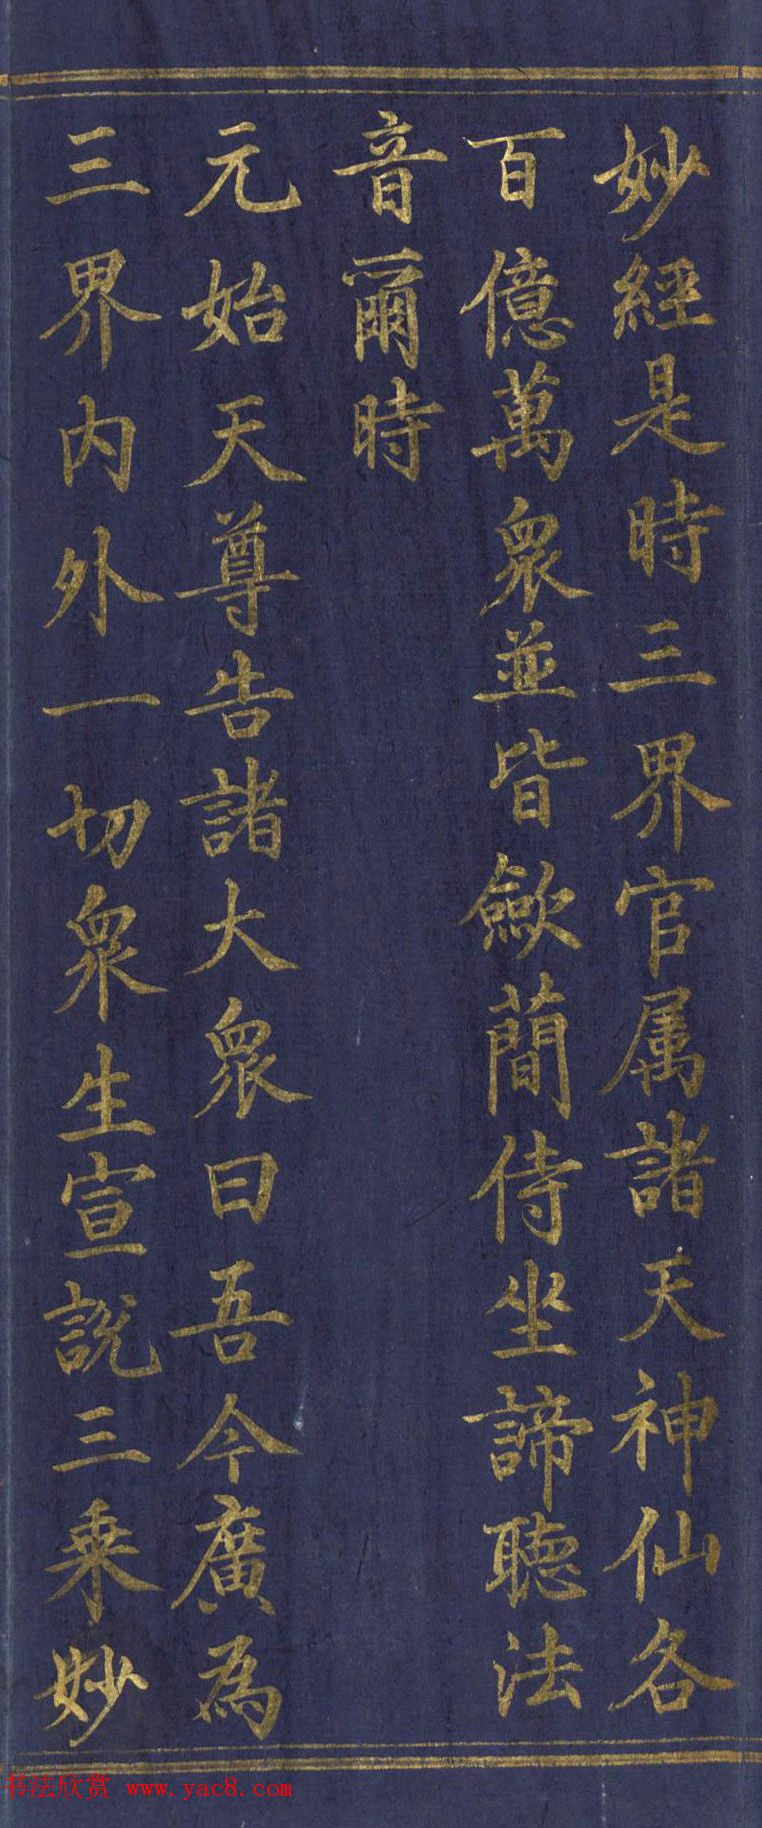 妙經是時三界官属諸天神仙各
百億萬衆並皆歛蕳侍坐諦聽法
音爾時
元始天尊告諸大衆曰吾今廣為
三界内外一切衆生宣說三乗妙
书法欣赏 www.yac8.com